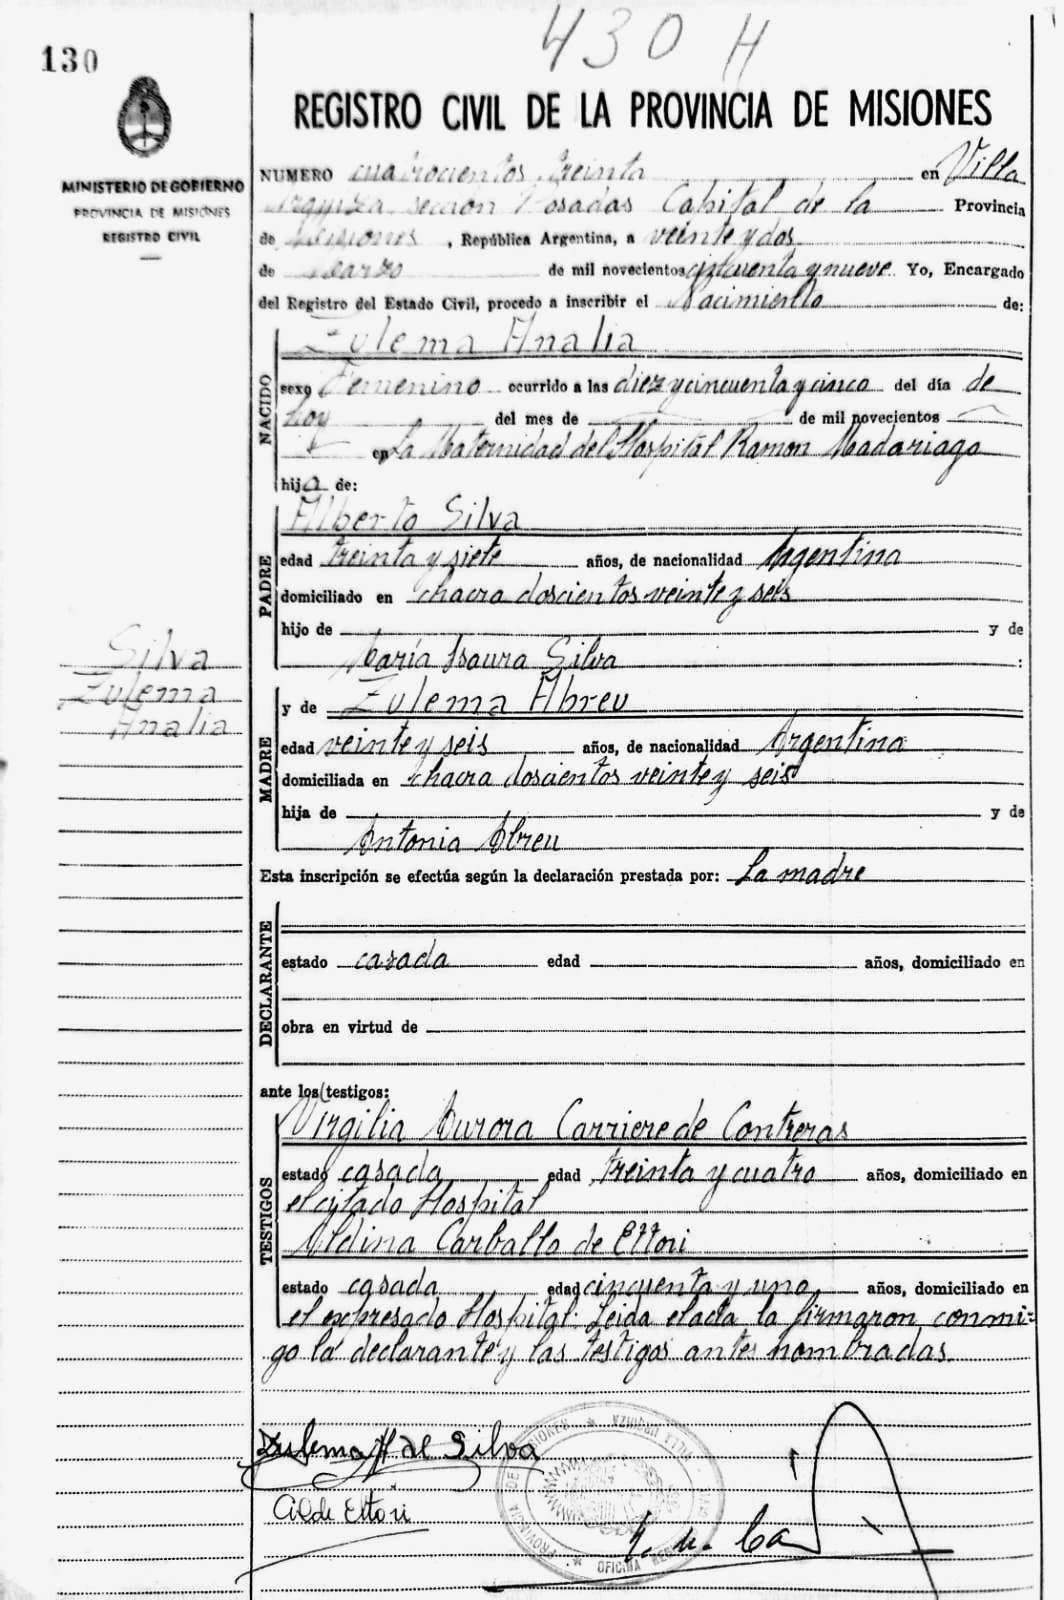 430 H
130
REGISTRO CIVIL DE LA PROVINCIA DE MISIONES
MINISTERIO DE GOBIERNO
PROVINCIA DE MISIONES
REGISTRO CIVIL
NUMERO cuatrocientos treinta en Villa
Urquiza sección Posadas Capital de la Provincia
de Misiones, República Argentina, a veinte y dos
de Marzo de mil novecientos cincuenta y nueve Yo, Encargado
del Registro del Estado Civil, procedo a inscribir el Nacimiento de:
NACIDO
Zulema Analia
sexo Femenino ocurrido a las diez y cincuenta y cinco del día de
hoy del mes de de mil novecientos
en La Maternidad del Hospital Ramon Madariaga
hija de:
PADRE
Alberto Silva
edad treinta y siete años, de nacionalidad Argentina
domiciliado en chacra doscientos veinte y seis
hijo de y de
María Isaura Silva :
Silva
Zulema
Analia
MADRE
y de Zulema Abreu
edad veinte y seis años, de nacionalidad Argentina
domiciliada en chacra doscientos veinte y seis
hija de y de
Antonia Abreu
Esta inscripción se efectúa según la declaración prestada por: La madre
DECLARANTE
estado casada edad años, domiciliado en
obra en virtud de
ante los testigos:
TESTIGOS
Virgilia Aurora Carriere de Contreras
estado casada edad treinta y cuatro años, domiciliado en
el citado Hospital
Aldina Carballo de Ettori
estado casada edad cincuenta y uno años, domiciliado en
el expresado Hospital. Leida el acta la firmaron conmi-
go la declarante y las testigos antes nombradas.
Zulema A de Silva
PROVINCIA DE MISIONES * VILLA URQUIZA
OFICINA
A C de Ettori